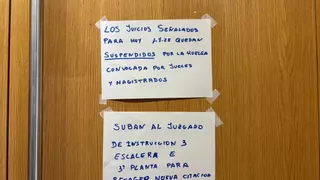 LOS JUICIOS SEÑALADOS
PARA HOY 1.7.25 QUEDAN
SUSPENDIDOS POR LA HUELGA
CONVOCADA POR JUECES
Y MAGISTRADOS
SUBAN AL JUZGADO
DE INSTRUCCION 3
ESCALERA E
3ª PLANTA PARA
RECOGER NUEVA CITACION